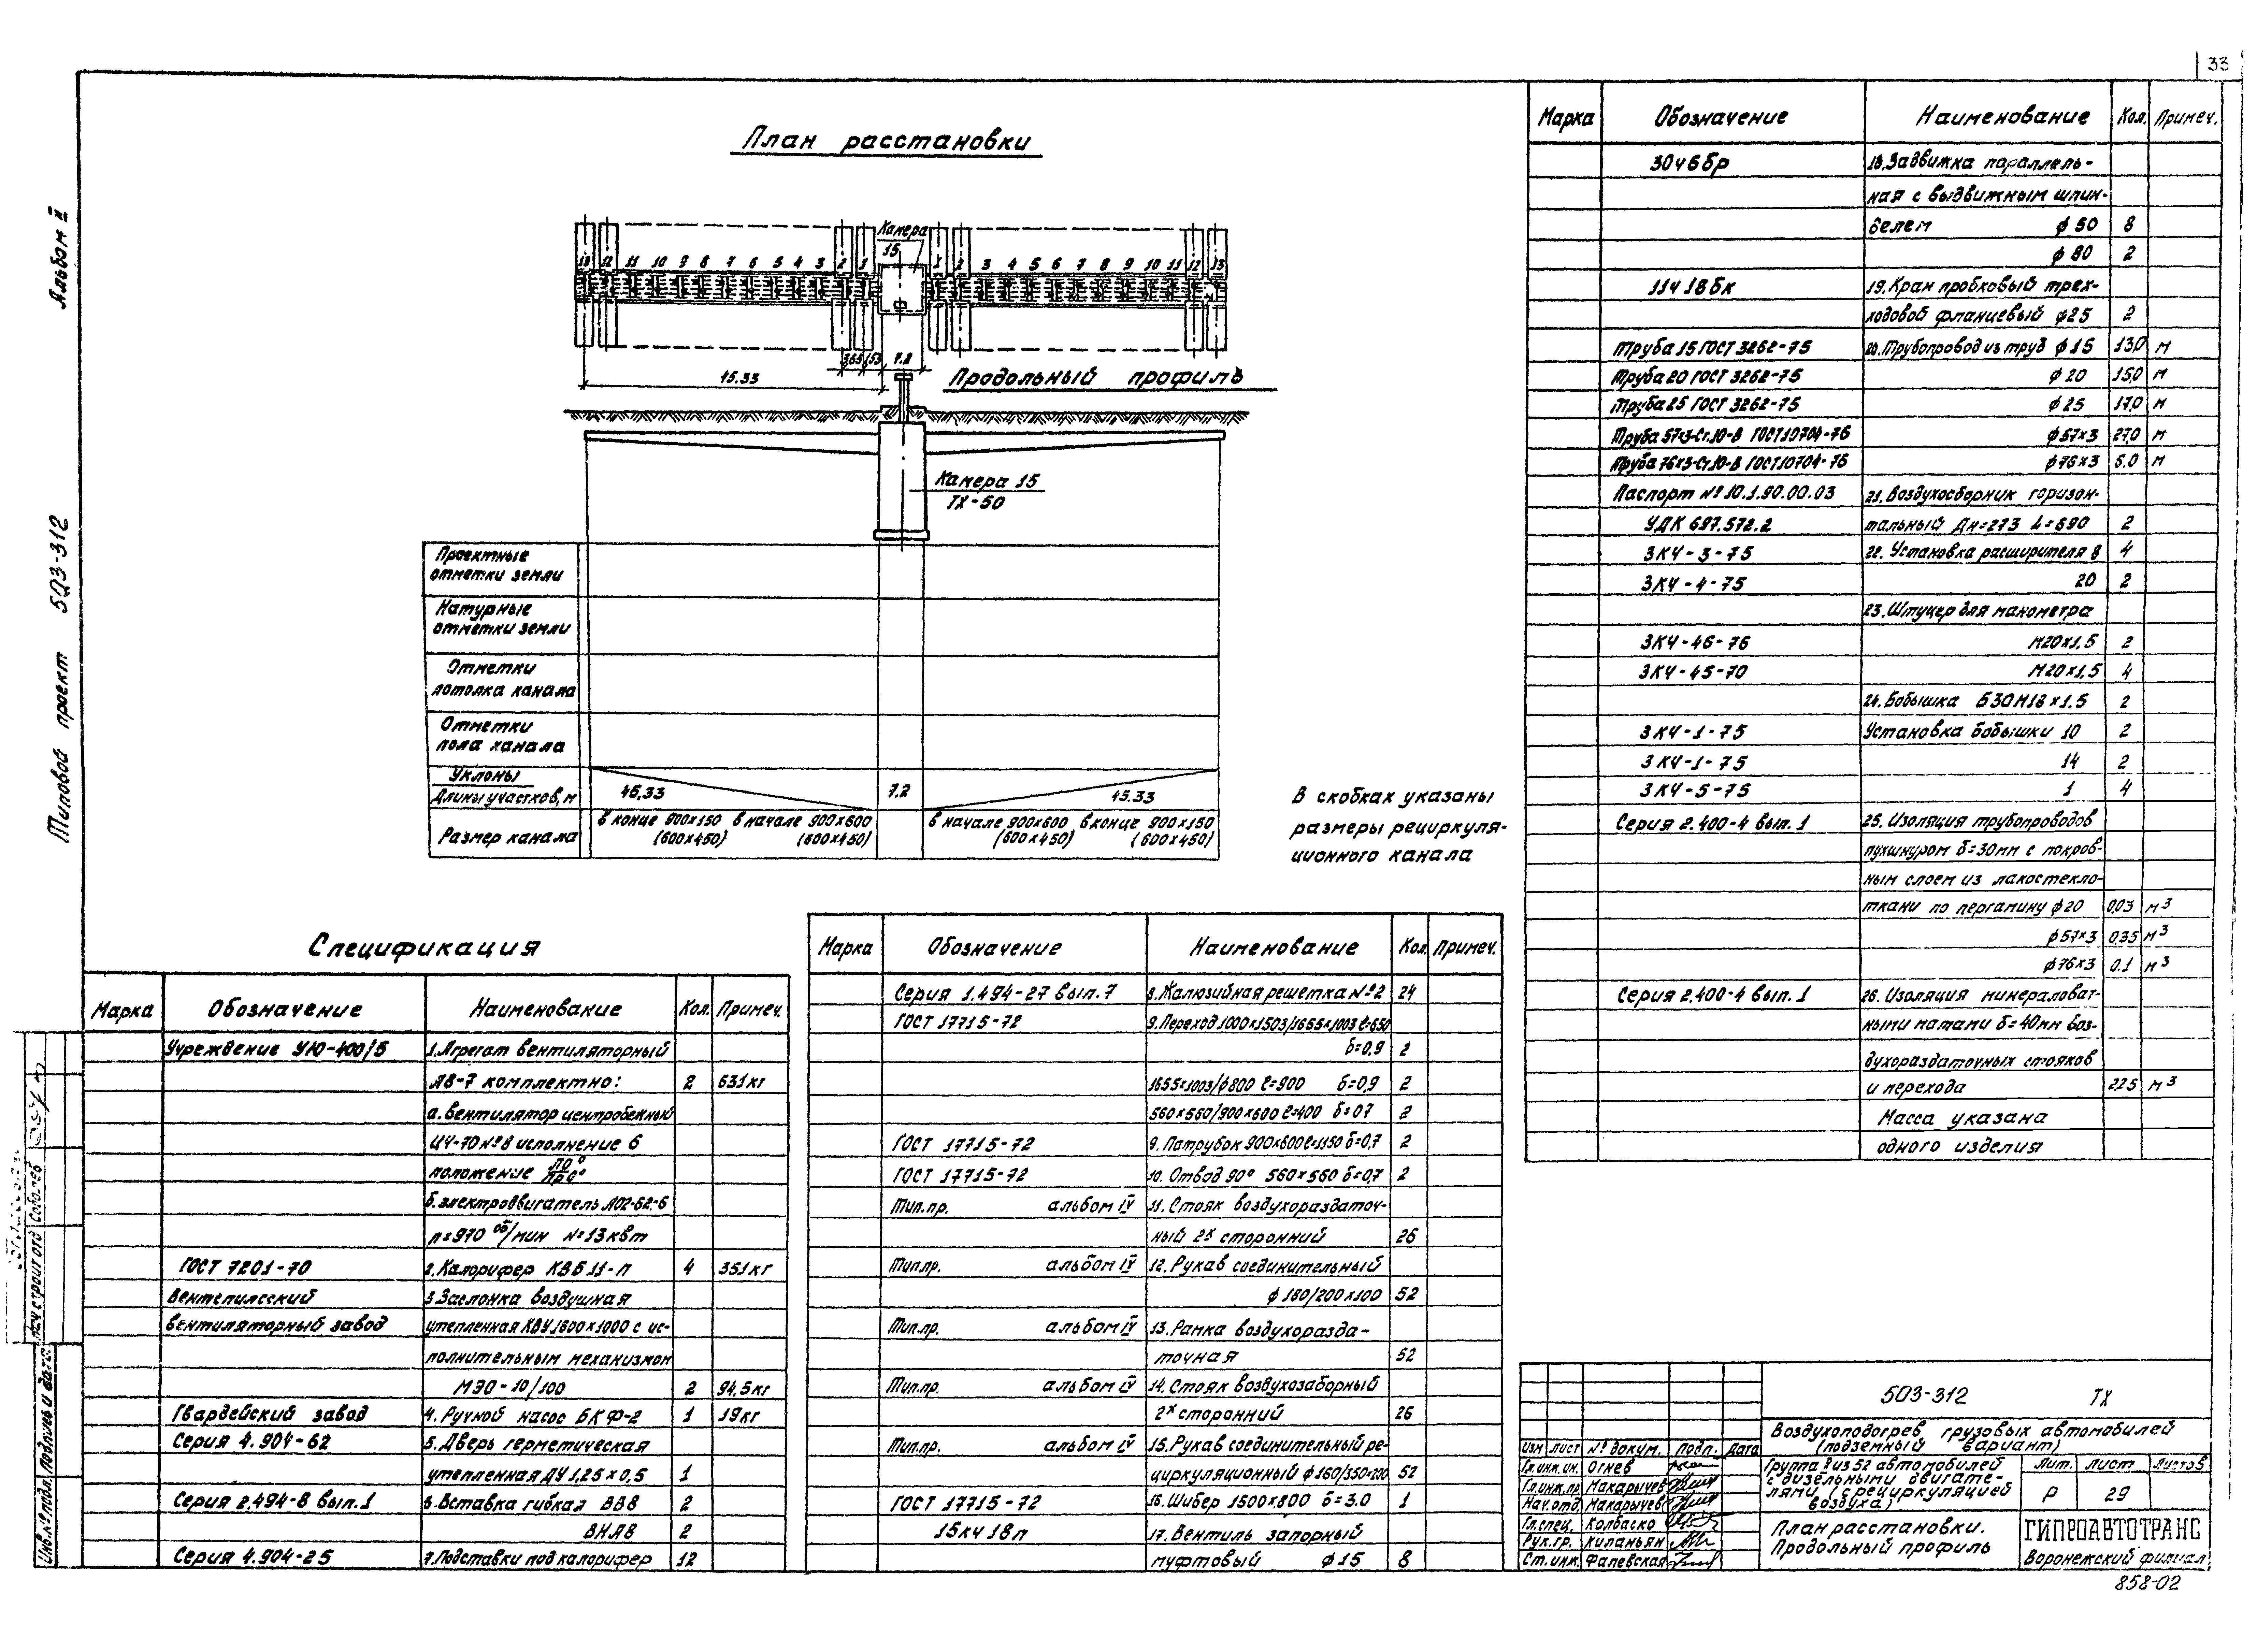 33
Альбом II
Типовой проект 503-312
План расстановки
Камера
15
13 12 11 10 9 8 7 6 5 4 3 2 1
1 2 3 4 5 6 7 8 9 10 11 12 13
3,65 1,53 7.2
45.33
Продольный профиль
Камера 15
ТХ-50
Проектные
отметки земли
Натурные
отметки земли
Отметки
потолка канала
Отметки
пола канала
Уклоны
Длины участков, м
45,33 7.2 45.33
Размер канала
в конце 900х150 в начале 900х600
(600х450) (600х450)
в начале 900х600 в конце 900х150
(600х450) (600х450)
В скобках указаны
размеры рециркуля-
ционного канала
Спецификация
Марка Обозначение Наименование Кол. Примеч.
Учреждение УЮ-400/5 1.Агрегат вентиляторный
А8-7 комплектно: 2 631кг
а. Вентилятор центробежный
Ц4-70 №8 исполнение 6
положение Л0°
Пр0°
б. электродвигатель АО2-62-6
п=970 об/мин N=13квт
ГОСТ 7201-70 2.Калорифер КВБ11-п 4 351кг
Вентспилсский 3.Заслонка воздушная
вентиляторный завод утепленная КВУ1600х1000 с ис-
полнительным механизмом
МЭО-10/100 2 94,5кг
Гвардейский завод 4. Ручной насос БКФ-2 1 19кг
Серия 4.904-62 5. Дверь герметическая
утепленная ДУ 1,25 х 0,5 1
Серия 2.494-8 вып.1 6.Вставка гибкая ВВ8 2
ВНА8 2
Серия 4.904-25 7.Подставки под калорифер 12
Марка Обозначение Наименование Кол. Примеч.
Серия 1.494-27 вып.7 8.Жалюзийная решетка №2 24
ГОСТ 17715-72 9.Переход 1000х1503/1655х1003 ℓ=650
δ=0,9 2
1655х1003/ф800 ℓ=900 δ=0,9 2
560х560/900х600 ℓ=400 δ=07 2
ГОСТ 17715-72 9. Патрубок 900х600 ℓ=1150 δ=0,7 2
ГОСТ 17715-72 10. Отвод 90° 560х560 δ=0,7 2
Тип.пр. альбом IV 11. Стояк воздухораздаточ-
ный 2х сторонний 26
Тип.пр. альбом IV 12. Рукав соединительный
ф 180/200х100 52
Тип.пр. альбом IV 13. Рамка воздухоразда-
точная 52
Тип.пр. альбом IV 14. Стояк воздухозаборный
2х сторонний 26
Тип.пр. альбом IV 15. Рукав соединительный ре-
циркуляционный ф160/350х200 52
ГОСТ 17715-72 16. Шибер 1500х800 δ=3.0 1
15кч 18п 17. Вентиль запорный
муфтовый ф15 8
Марка Обозначение Наименование Кол. Примеч.
30ч6бр 18.Задвижка параллель-
ная с выдвижным шпин-
делем ф 50 8
ф 80 2
11ч18бк 19. Кран пробковый трех-
ходовой фланцевый ф25 2
Труба 15 ГОСТ 3262-75 20.Трубопровод из труб ф 15 13,0 м
Труба 20 ГОСТ 3262-75 ф 20 15,0 м
Труба 25 ГОСТ 3262-75 ф 25 17,0 м
Труба 57х3-Ст.10-В ГОСТ10704-76 ф57х3 27,0 м
Труба 76х3-Ст.10-В ГОСТ10704-76 ф76х3 6.0 м
Паспорт №10.1.90.00.03 21. Воздухосборник горизон-
УДК 697.572.2 тальный Дн=273 L=690 2
ЗК4-3-75 22. Установка расширителя 8 4
ЗК4-4-75 20 2
23. Штуцер для манометра
ЗК4-46-76 М20х1,5 2
ЗК4-45-70 М20х1,5 4
24. Бобышка Б30М18х1.5 2
ЗК4-1-75 Установка бобышки 10 2
ЗК4-1-75 14 2
ЗК4-5-75 1 4
Серия 2.400-4 вып.1 25. Изоляция трубопроводов
пухшнуром δ=30мм с покров-
ным слоем из лакостекло-
ткани по пергамину ф20 0,03 м3
ф57х3 0,35 м3
ф76х3 0.1 м3
Серия 2.400-4 вып.1 26. Изоляция минераловат-
ными матами δ=40мм воз-
духораздаточных стояков
и перехода 2,25 м3
Масса указана
одного изделия
503-312 ТХ
Воздухоподогрев грузовых автомобилей
(подземный вариант)
Изм Лист № докум. Подп. Дата
Гл.инж.ин. Огнев
Гл.инж.пр Макарычев
Нач.отд. Макарычев
Гл.спец. Колбаско
Рук.гр. Киланьян
Ст.инж. Фалевская
Группа 2 из 52 автомобилей
с дизельными двигате-
лями (с рециркуляцией
воздуха)
Лит. Лист Листов
Р 29
План расстановки.
Продольный профиль
ГИПРОАВТОТРАНС
Воронежский филиал
858-02
Нач строит отд Соболев
Инв.№подл. Подпись и дата